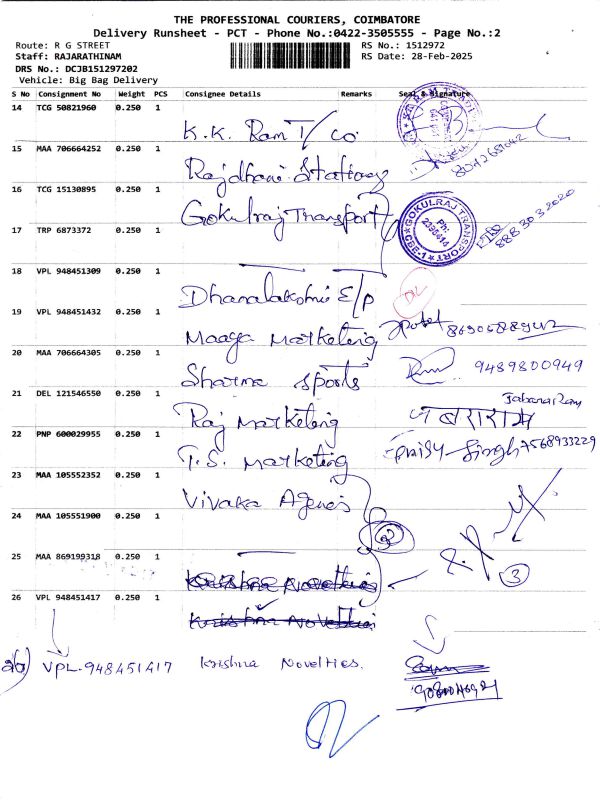 THE PROFESSIONAL COURIERS, COIMBATORE
Delivery Runsheet - PCT - Phone No.:0422-3505555 - Page No.:2
Route: R G STREET RS No.: 1512972
Staff: RAJARATHINAM RS Date: 28-Feb-2025
DRS No.: DCJB151297202
Vehicle: Big Bag Delivery
S No Consignment No Weight PCS Consignee Details Remarks Seal & Signature
14 TCG 50821960 0.250 1
K.K. Ram T/ co
15 MAA 706664252 0.250 1
Rajdhani Stationy
16 TCG 15130895 0.250 1
Gokulraj Transport
GOKULRAJ TRANSPORT
Ph:
CBE-1
17 TRP 6873372 0.250 1
18 VPL 948451309 0.250 1
Dhanalakshmi E/P
19 VPL 948451432 0.250 1
Maaga Marketing
20 MAA 706664305 0.250 1
Sharma Sports 9489800949
21 DEL 121546550 0.250 1
Raj Marketing
जबराराम
22 PNP 600029955 0.250 1
T.S. Marketing Singh 7568933229
23 MAA 105552352 0.250 1
Vivaka Agencis
24 MAA 105551900 0.250 1
3
25 MAA 869199318 0.250 1
Krishna Novelties
3
26 VPL 948451417 0.250 1
Krishna Novelties
26) VPL-948451417 Krishna Novelties.